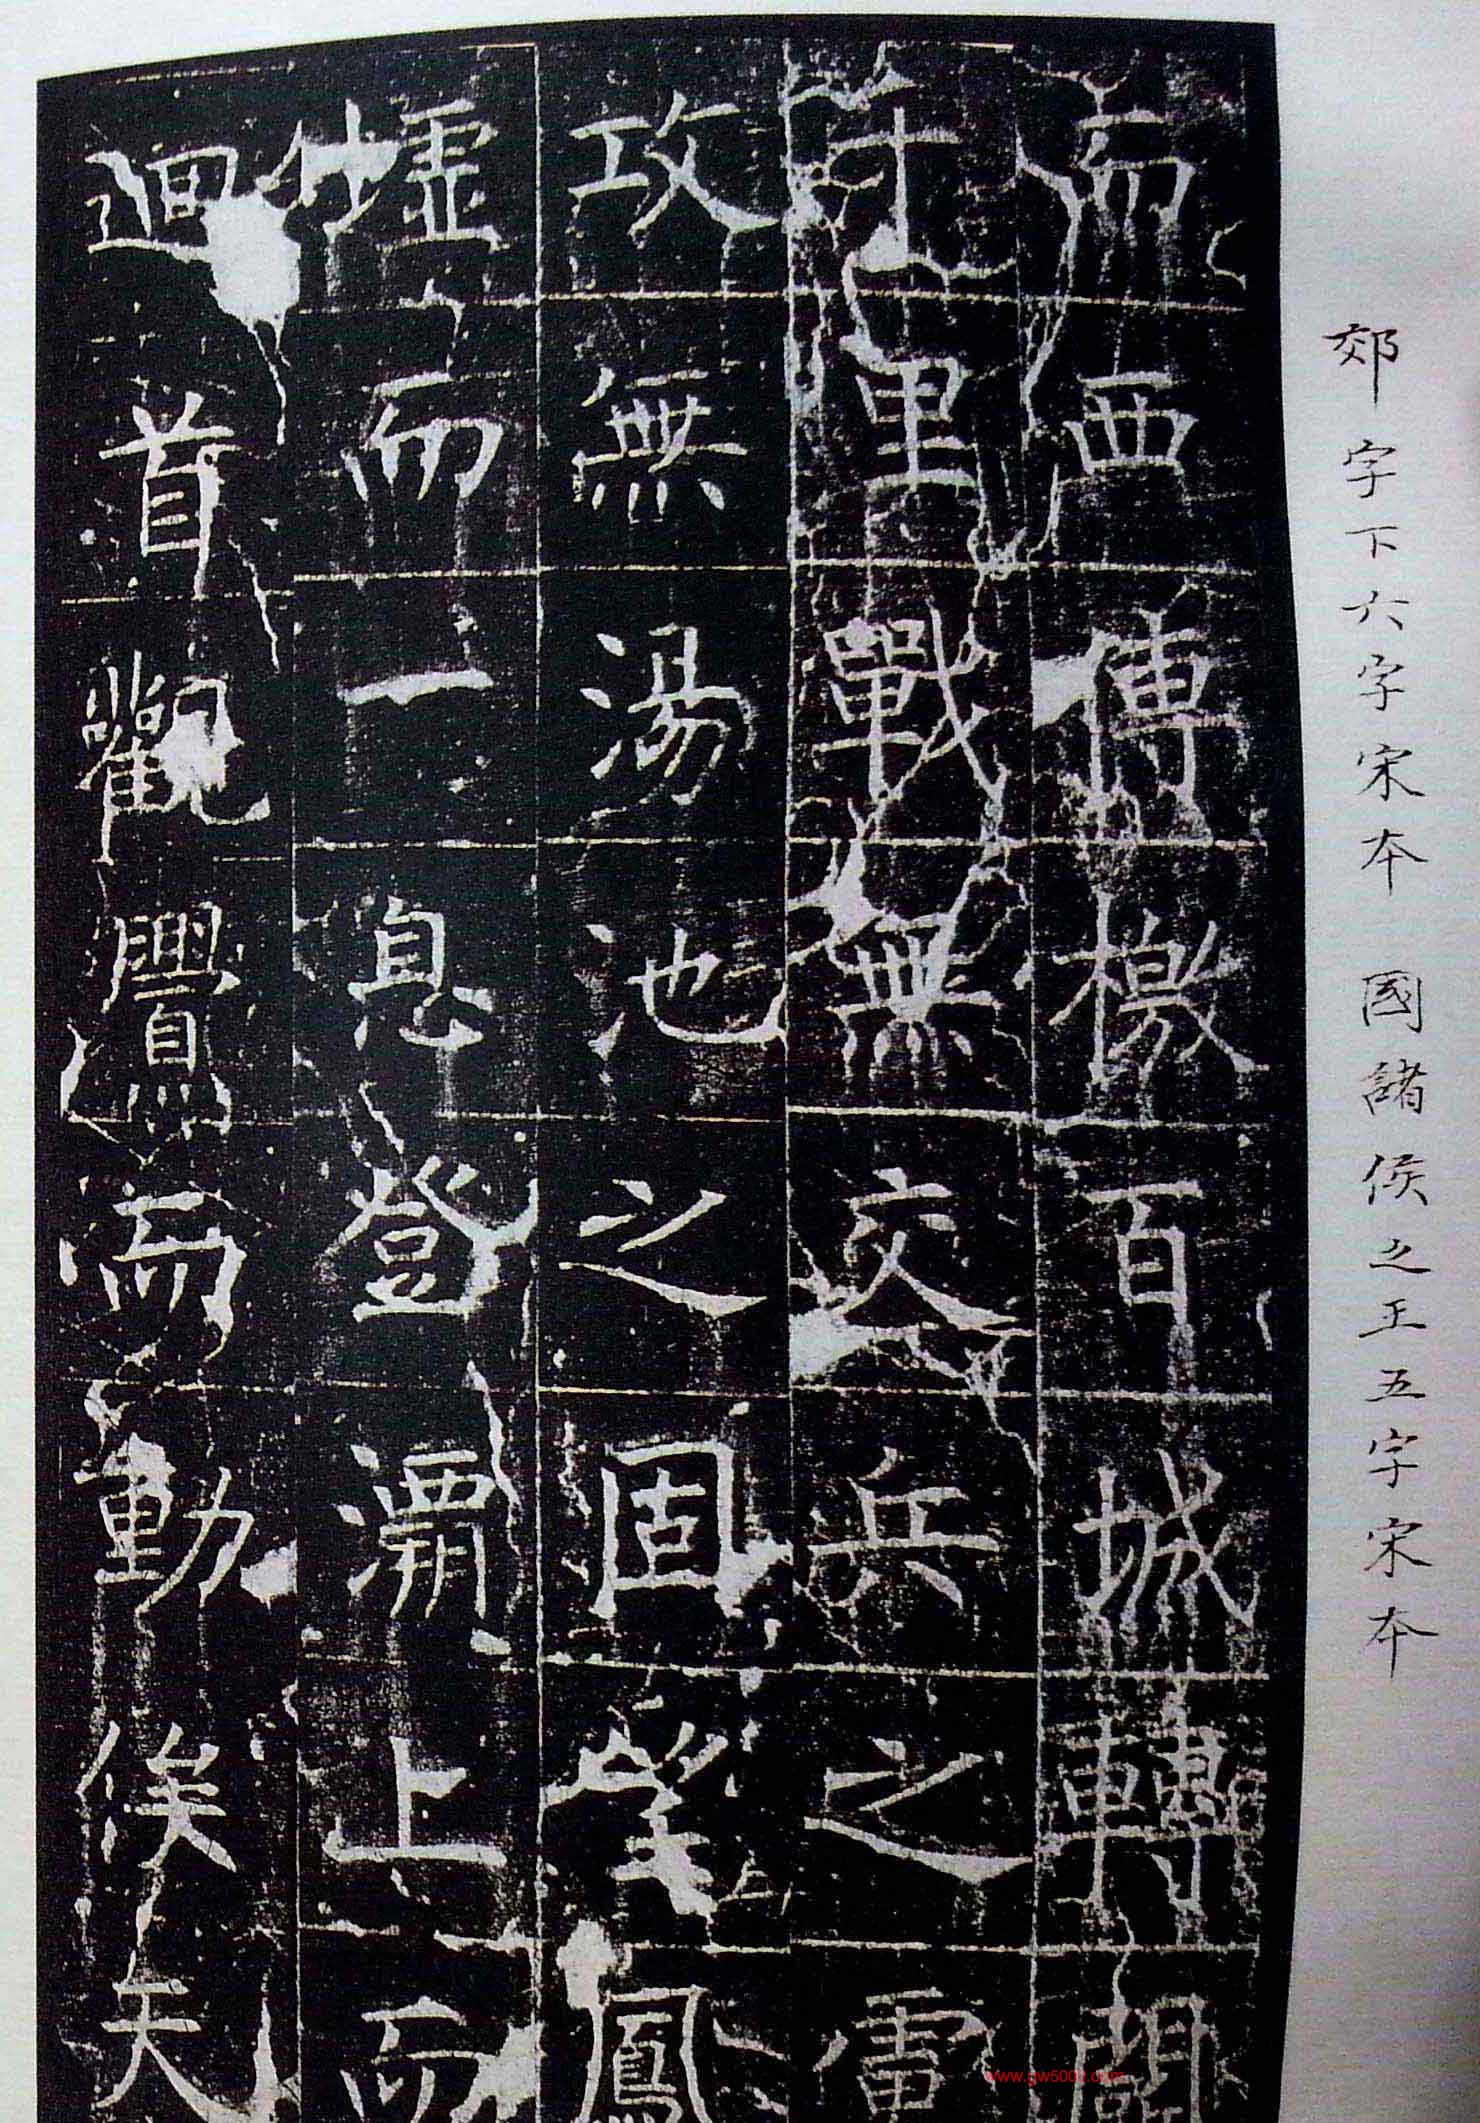 郊字下六字宋本 國諸侯之王五字宋本
而西傳檄百城轉鬭
千里戰無交兵之
攻無湯池之固望鳳
墟而一息登灞上而
迴首觀釁而動俟天
www.gw500.com